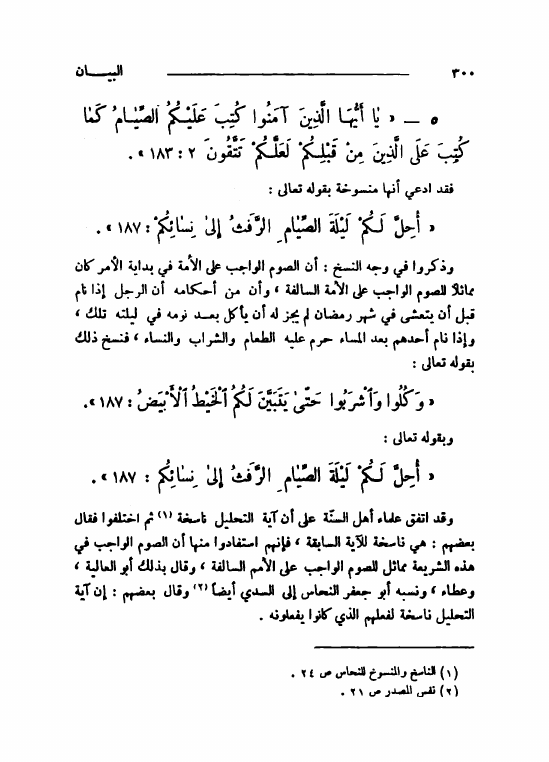 ٣٠٠ ـــــــــــــــــــــ البيـــان
٥ ــ « يٰا أَيُّهَا الَّذِينَ آمَنُوا كُتِبَ عَلَيْكُمُ الصِّيٰامُ كَمٰا
كُتِبَ عَلَى الَّذِينَ مِنْ قَبْلِكُمْ لَعَلَّكُمْ تَتَّقُونَ ٢ : ١٨٣ » .
فقد ادعي أنها منسوخة بقوله تعالى :
« أُحِلَّ لَكُمْ لَيْلَةَ الصِّيٰامِ الرَّفَثُ إِلىٰ نِسٰائِكُمْ : ١٨٧ » .
وذكروا في وجه النسخ : أن الصوم الواجب على الأمة في بداية الأمر كان
مماثلاً للصوم الواجب على الأمة السالفة ، وأن من أحكامه أن الرجل إذا نام
قبل أن يتعشى في شهر رمضان لم يجز له أن يأكل بعد نومه في ليلته تلك ،
وإذا نام أحدهم بعد المساء حرم عليه الطعام والشراب والنساء ، فنسخ ذلك
بقوله تعالى :
« وَكُلُوا وَٱشْرَبُوا حَتّىٰ يَتَبَيَّنَ لَكُمُ ٱلْخَيْطُ ٱلْأَبْيَضُ : ١٨٧ » .
وبقوله تعالى :
« أُحِلَّ لَكُمْ لَيْلَةَ الصِّيٰامِ الرَّفَثُ إِلىٰ نِسٰائِكُمْ : ١٨٧ » .
وقد اتفق علماء أهل السنّة على أن آية التحليل ناسخة (١) ثم اختلفوا فقال
بعضهم : هي ناسخة للآية السابقة ، فإنهم استفادوا منها أن الصوم الواجب في
هذه الشريعة مماثل للصوم الواجب على الأمم السالفة ، وقال بذلك أبو العالية ،
وعطاء ، ونسبه أبو جعفر النحاس إلى السدي أيضاً (٢) وقال بعضهم : إن آية
التحليل ناسخة لفعلهم الذي كانوا يفعلونه .
(١) الناسخ والمنسوخ للنحاس ص ٢٤ .
(٢) نفس المصدر ص ٢١ .